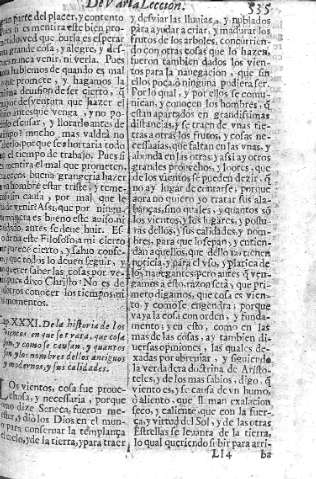 De Varia Leccion. 535
gran parte del placer, y contento
pues si es mentira este bien pro-
que burla es esperar
grande cosa, y alegre, y des-
nunca venir, ni verla. Pues
hubiemos de quando es mal
promete, y hagamos la
de ser cierto, que
desventura que hazer el
antes que venga, y no po-
escusar, y llorarlo antes de
tiempo? mucho mas valdrà no
porque se ahorraria todo
el tiempo de trabajo. Pues si
es mentira el mal que prometen,
buena grangeria hazer
hombre estar triste, y teme-
causa, por mal, que le
de venir? Assi, que por ningu-
manera es bueno este auiso, ni
antes se deue huir. Es
esta Filosofia mi cierto
cierto, y sabio conse-
que todos lo deuen seguir, y
querer saber las cosas por ve-
pues dixo Christo: No es de
vosotros conocer los tiempos, ni
momentos.
Cap. XXXI. De la historia de los
vientos, en que se trata, que cosa
son, y como se causan, y quantos
son, y los nombres dellos antiguos
y modernos, y sus calidades.
Los vientos, cosa fue proue-
chosa, y necessaria, porque
como dize Seneca, fueron me-
y diò los Dios en el mun-
para conservar la templança
cielo, y de la tierra, y para traer
y desviar las lluvias, y nublados
para ayudar à criar, y madurar los
frutos de los arboles, concurrien-
do con otras cosas que lo hazen,
fueron tambien dados los vien-
tos para la navegacion, que sin
ellos poca, ò ninguna pudiera ser.
Por lo qual, y por ellos se comu-
nican, y conocen los hombres, q̃
estan apartados en grandissimas
distancias, y se traen de vnas tie-
rras à otras los frutos, y cosas ne-
cessarias, que faltan en las vnas, y
abundan en las otras, y assi ay otros
grandes prouechos, y loores, que
de los vientos se pueden dezir, q̃
no ay lugar de contarse, porque
aora no quiero yo tratar sus ala-
banças, sino quales, y quantos son
los vientos, y los lugares, y postu-
ras dellos, y sus calidades, y nom-
bres, para que lo sepan, y entien-
dan aquellos, que dello no tienen
noticia, y para el vso, y platica de
los nauegantes, pero antes q̃ ven-
gamos à esto, razon serà, que pri-
mero digamos, que cosa es vien-
to, y como se engendra, porque
vaya la cosa con orden, y funda-
mento; y en esto, como en las
mas de las cosas, ay tambien di-
uersas opiniones, las quales de-
xadas por abreuiar, y siguiendo
la verdadera doctrina de Aristo-
teles, y de los mas sabios, digo, q̃
viento es, y se causa de vn humo,
ò aliento, que ll mar exalacion
seco, y caliente, que con la fuer-
ça, y virtud del Sol, y de las otras
Estrellas se levanta de la tierra,
lo qual queriendo subir para arri-
Ll 4 ba